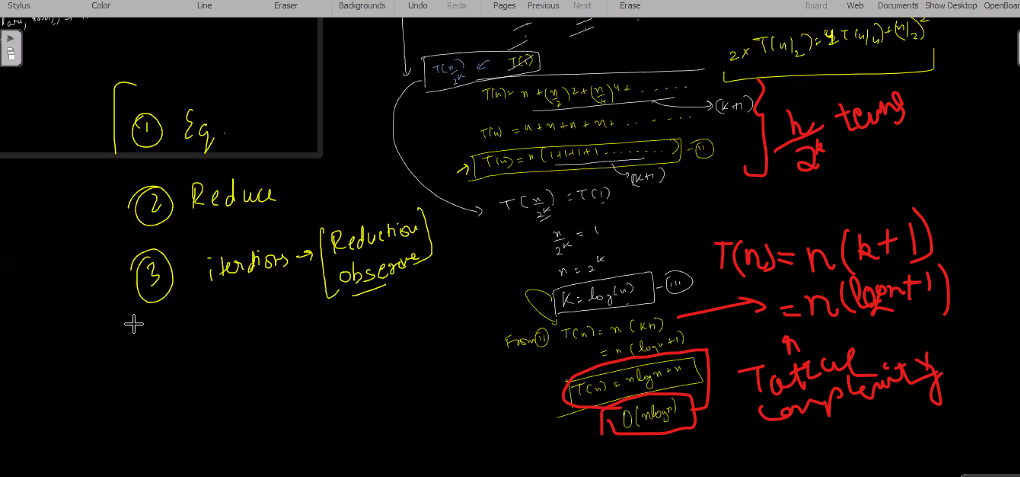 Stylus Color Line Eraser Backgrounds Undo Redo Pages Previous Next Erase Board Web Documents Show Desktop OpenBoard
① Eq.
② Reduce
③ iterations → [Reduction
observe]
T(n/2^k) ← T(1)
T(n) = n + (n/2)2 + (n/4)4 + ......
→ (k+1)
T(n) = n + n + n + n + ......
→ T(n) = n (1+1+1+1 ........) - ii
→ (k+1)
T(n/2^k) = T(1)
n/2^k = 1
n = 2^k
K = log(n) - iii
From ii T(n) = n (k+1)
= n (log n + 1)
T(n) = n log n + n
O(n log n)
2 × T(n/2) = 4 T(n/4) + (n/2)²
n/2^k terms
T(n) = n (k + 1)
= n (log n + 1)
Total
complexity